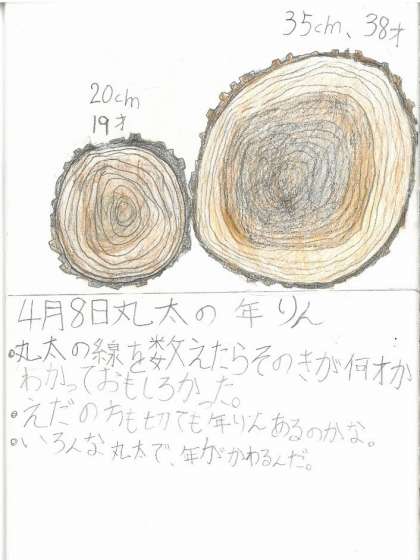 35cm、38才
20cm
19才
4月8日丸太の年りん
•丸太の線を数えたらそのきが何才か
わかっておもしろかった。
•えだの方も切ても年りんあるのかな。
•いろんな丸太で、年がかわるんだ。